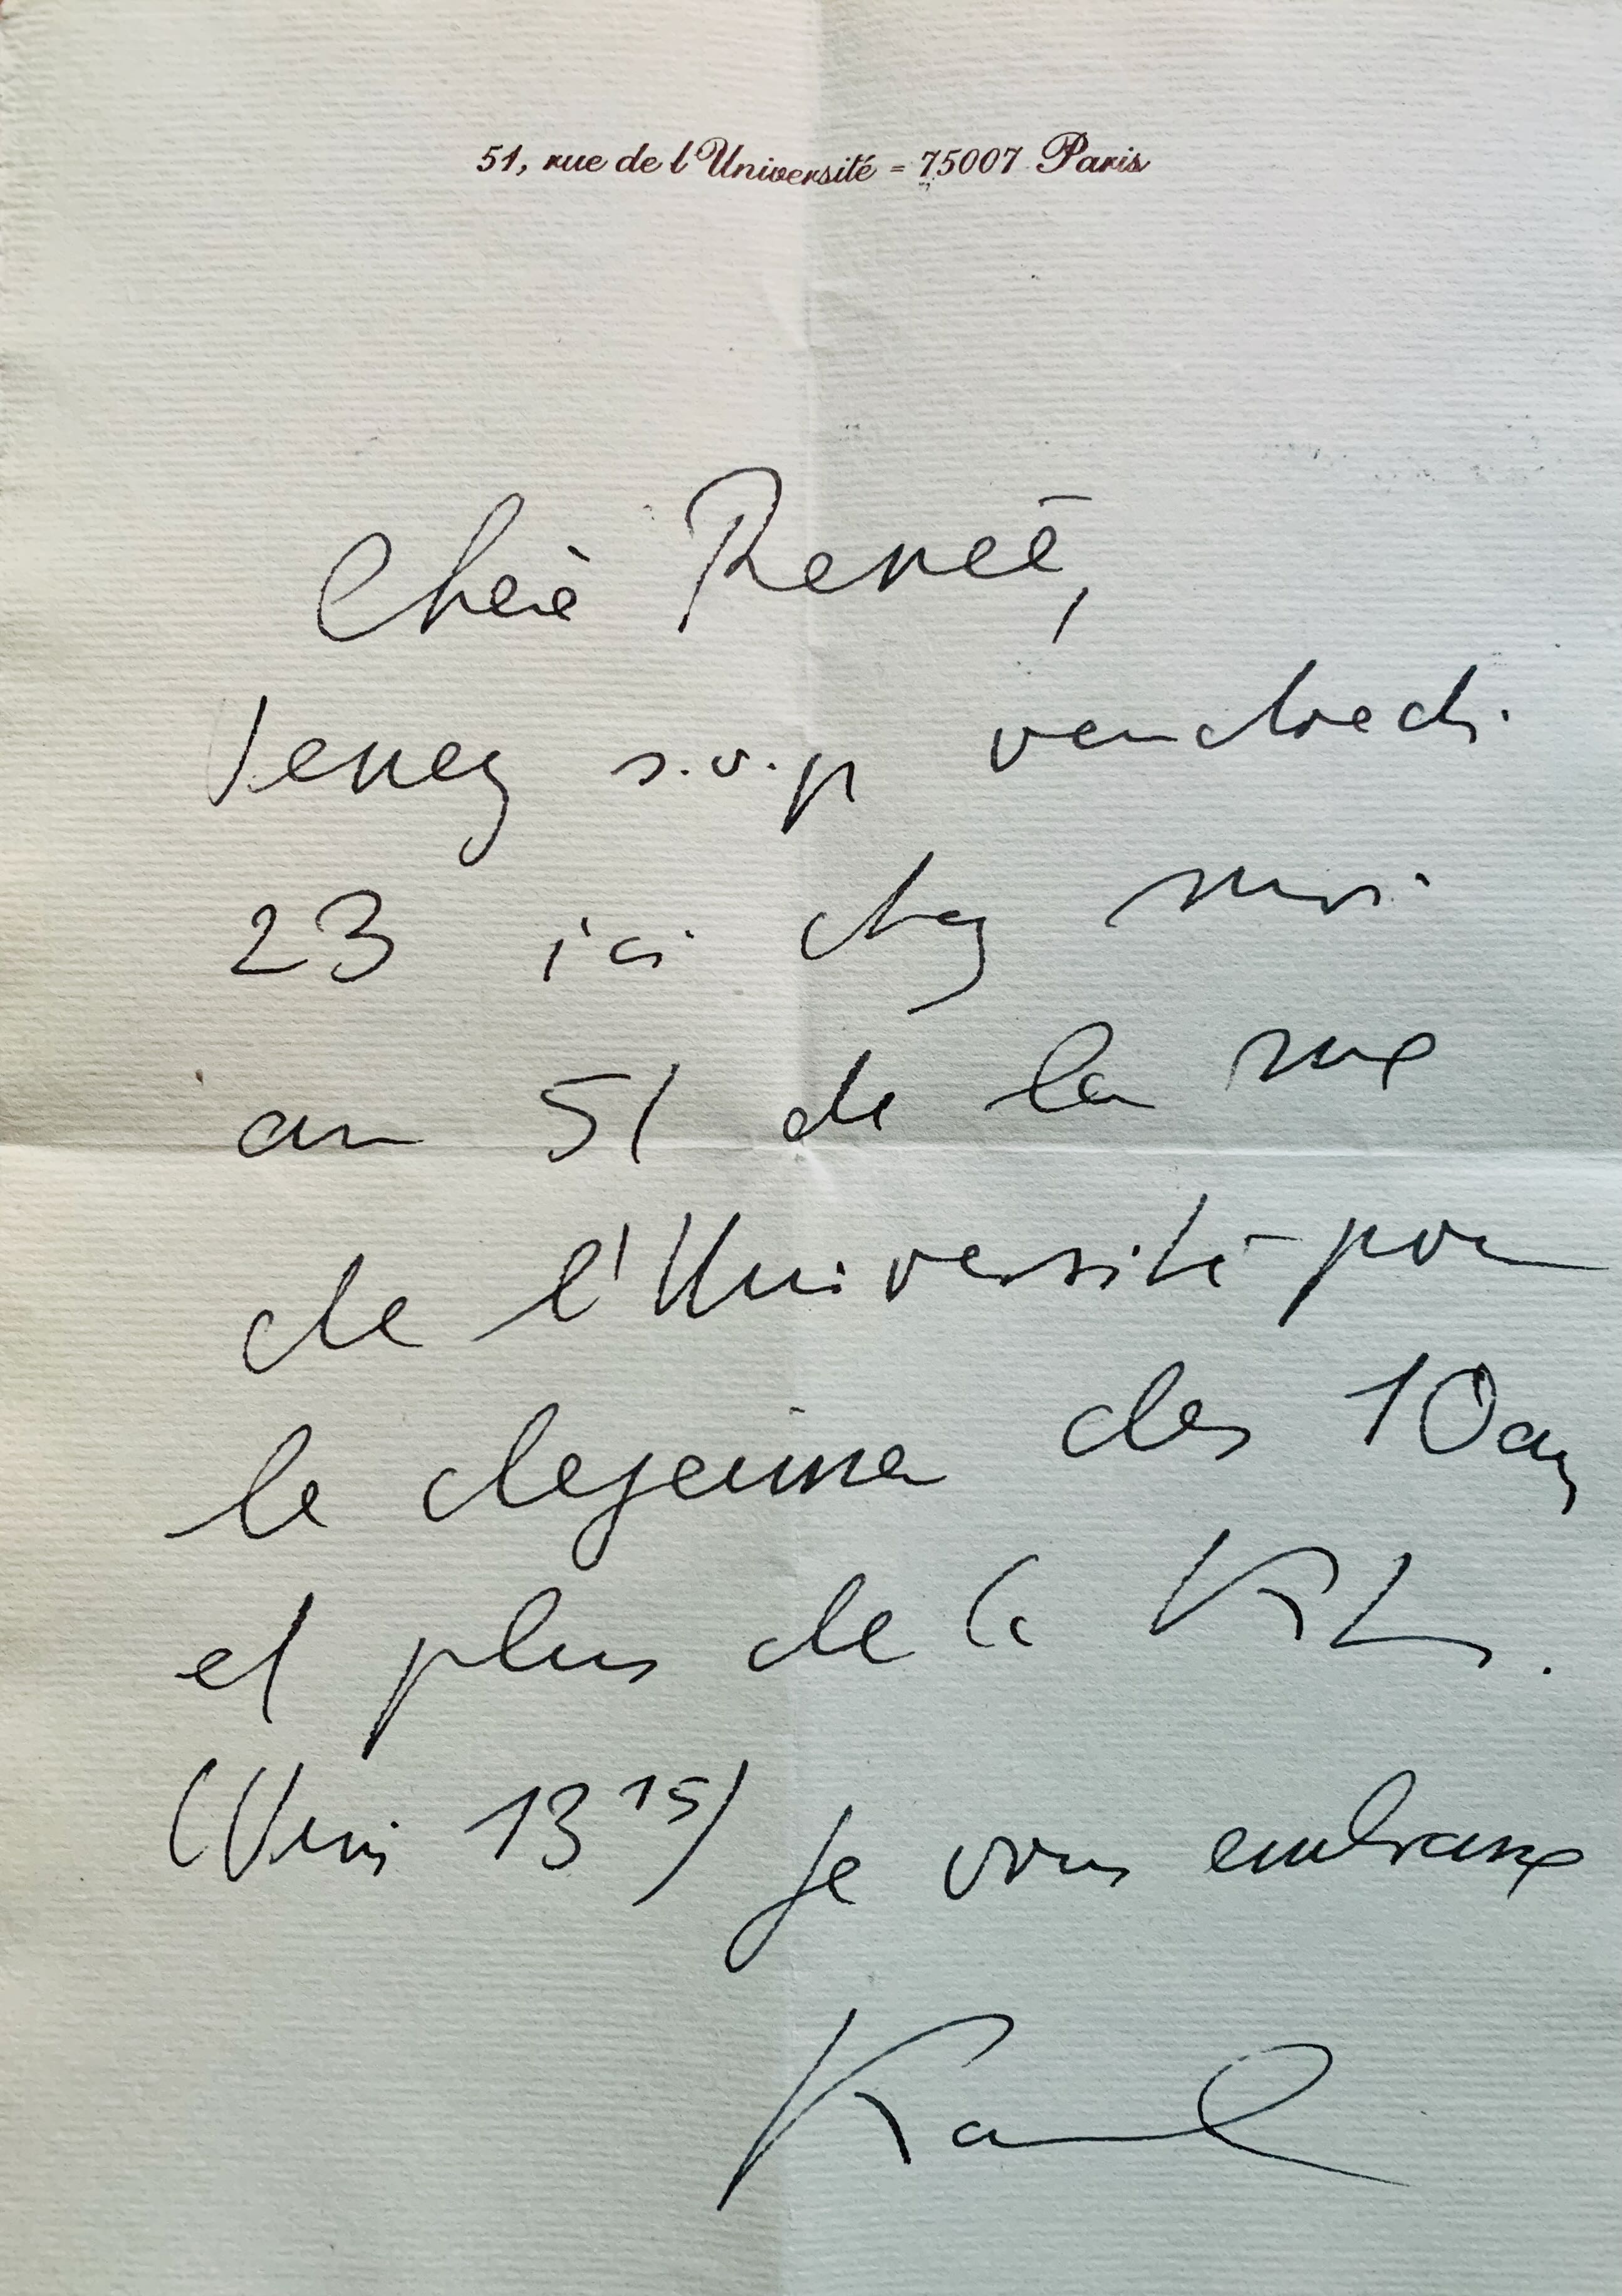 51, rue de l'Université = 75007 Paris
Chère Renée,
Venez s.v.p vendredi
23 ici chez moi
au 51 de la rue
de l'Université pour
le dejeuner des 10 ans
et plus de la KL.
(Vers 13 15) Je vous embrasse
Karl